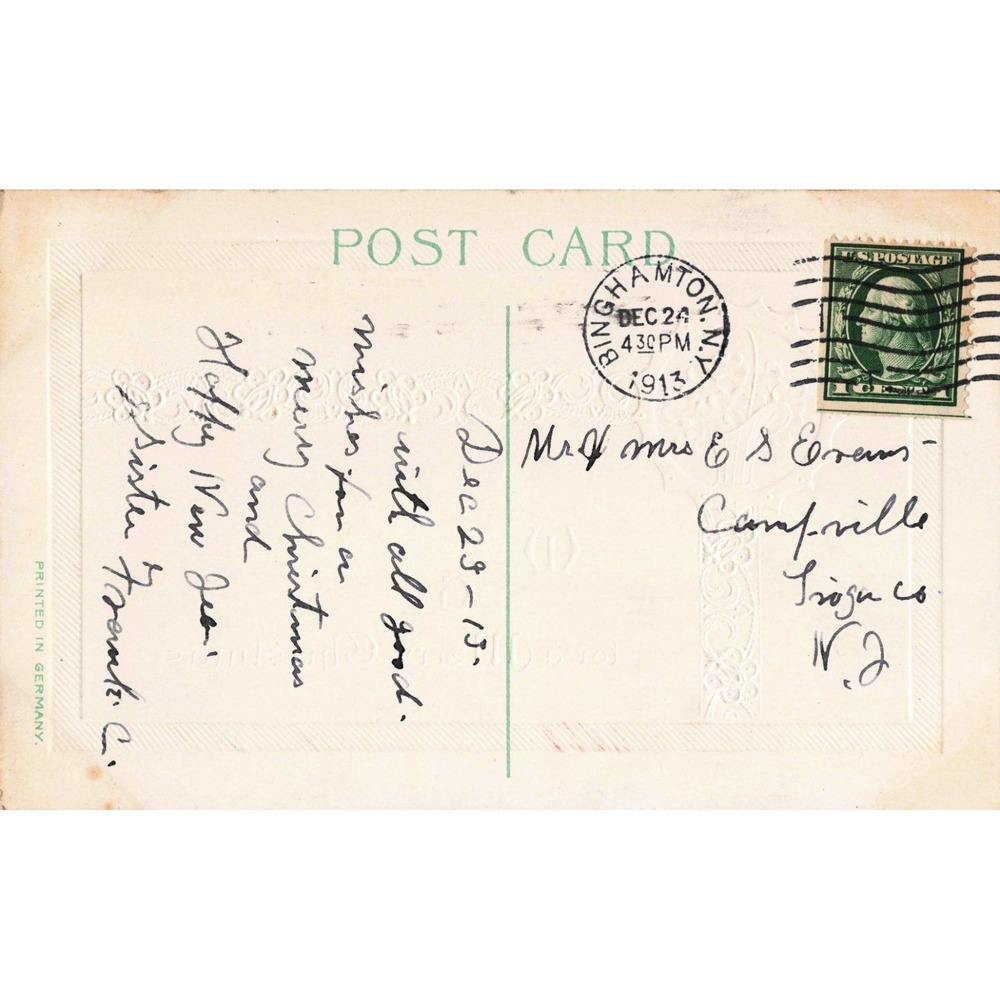 POST CARD
BINGHAMTON. N.Y.
DEC 24
4 30 PM
1913
U.S. POSTAGE
Dec 23-13.
with all good.
wishes for a
Merry Christmas
and
Happy New Year.
Sister & Frank C.
Mr & Mrs E S Evans
Campville
Tioga Co
N.Y
PRINTED IN GERMANY.